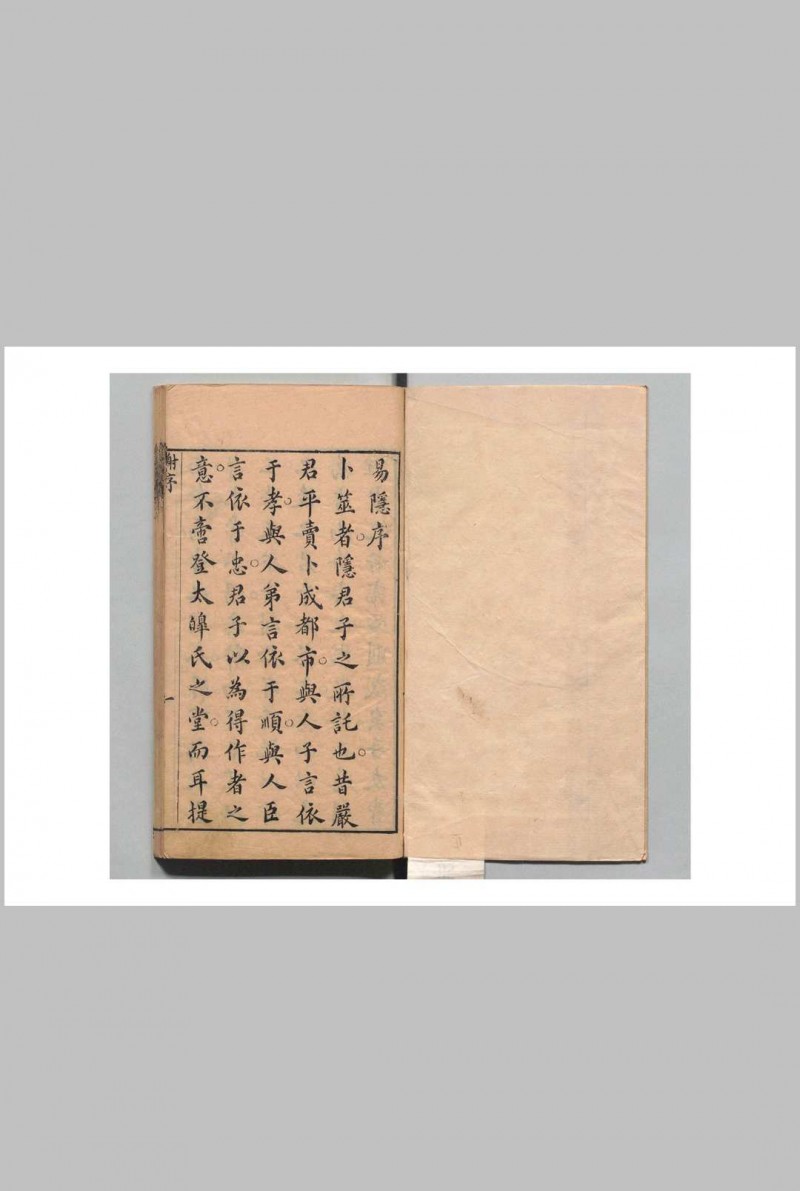 易隱序
卜筮者。隱君子之所託也。昔嚴
君平賣卜成都市。與人子言依
于孝。與人弟言依于順。與人臣
言依于忠。君子以為得作者之
意。不啻登太皞氏之堂。而耳提
謝序
一